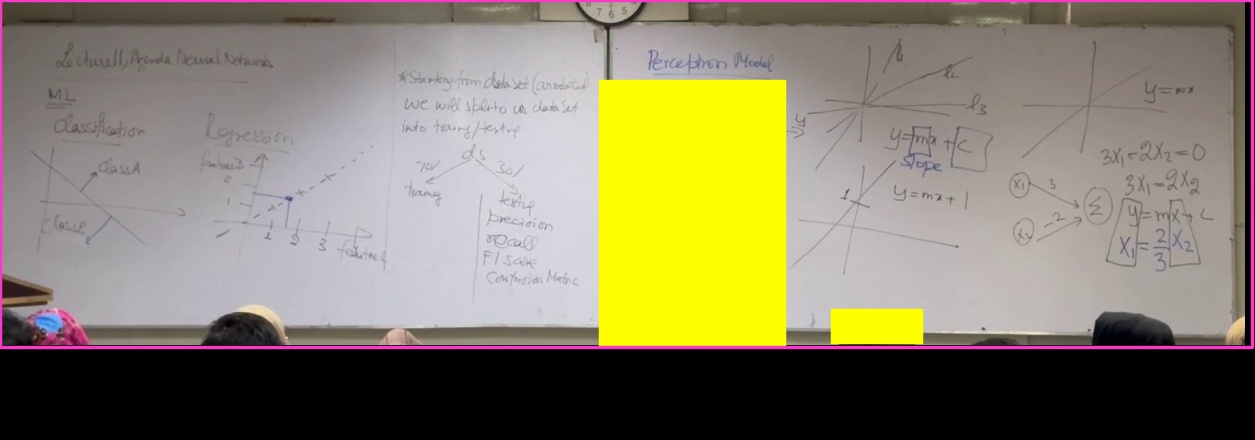 Lecture 11, Agenda Neural Networks
ML
Classification
Class A
Class B
Regression
feature 2
2
1
1 2 3
feature 1
* Starting from dataset (annotated)
we will split our dataset
into traing/testig
ds
70% 30%
traing
testig
precision
recall
F1 score
Confusion Matrix
Perceptron Model
y
l1
l2
l3
y=mx+c
slope
1
y=mx+1
y=mx
3x1-2x2=0
3x1=2x2
x1 3
x2 -2
Σ
y=mx+c
x1=2/3 x2
7 6 5